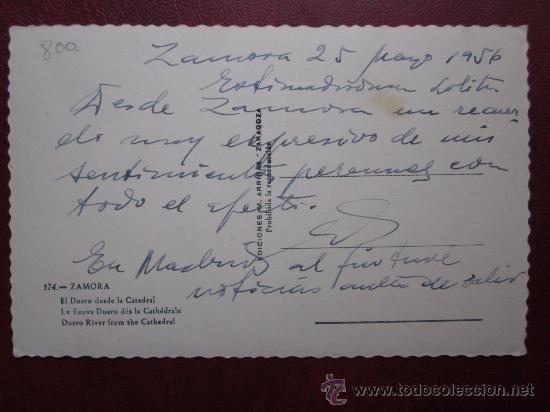 800
Zamora 25 mayo 1956
Estimadísima Lolita
Desde Zamora un recuer-
do muy expresivo de mis
sentimientos personales con
todo el afecto.
En Madrid al fin tuve
noticias antes de salir
EDICIONES M. ARRIBAS - ZARAGOZA
Prohibida la reproducción
174.— ZAMORA
El Duero desde la Catedral
Le fleuve Duero dès la Cathédrale
Duero River from the Cathedral
www.todocoleccion.net